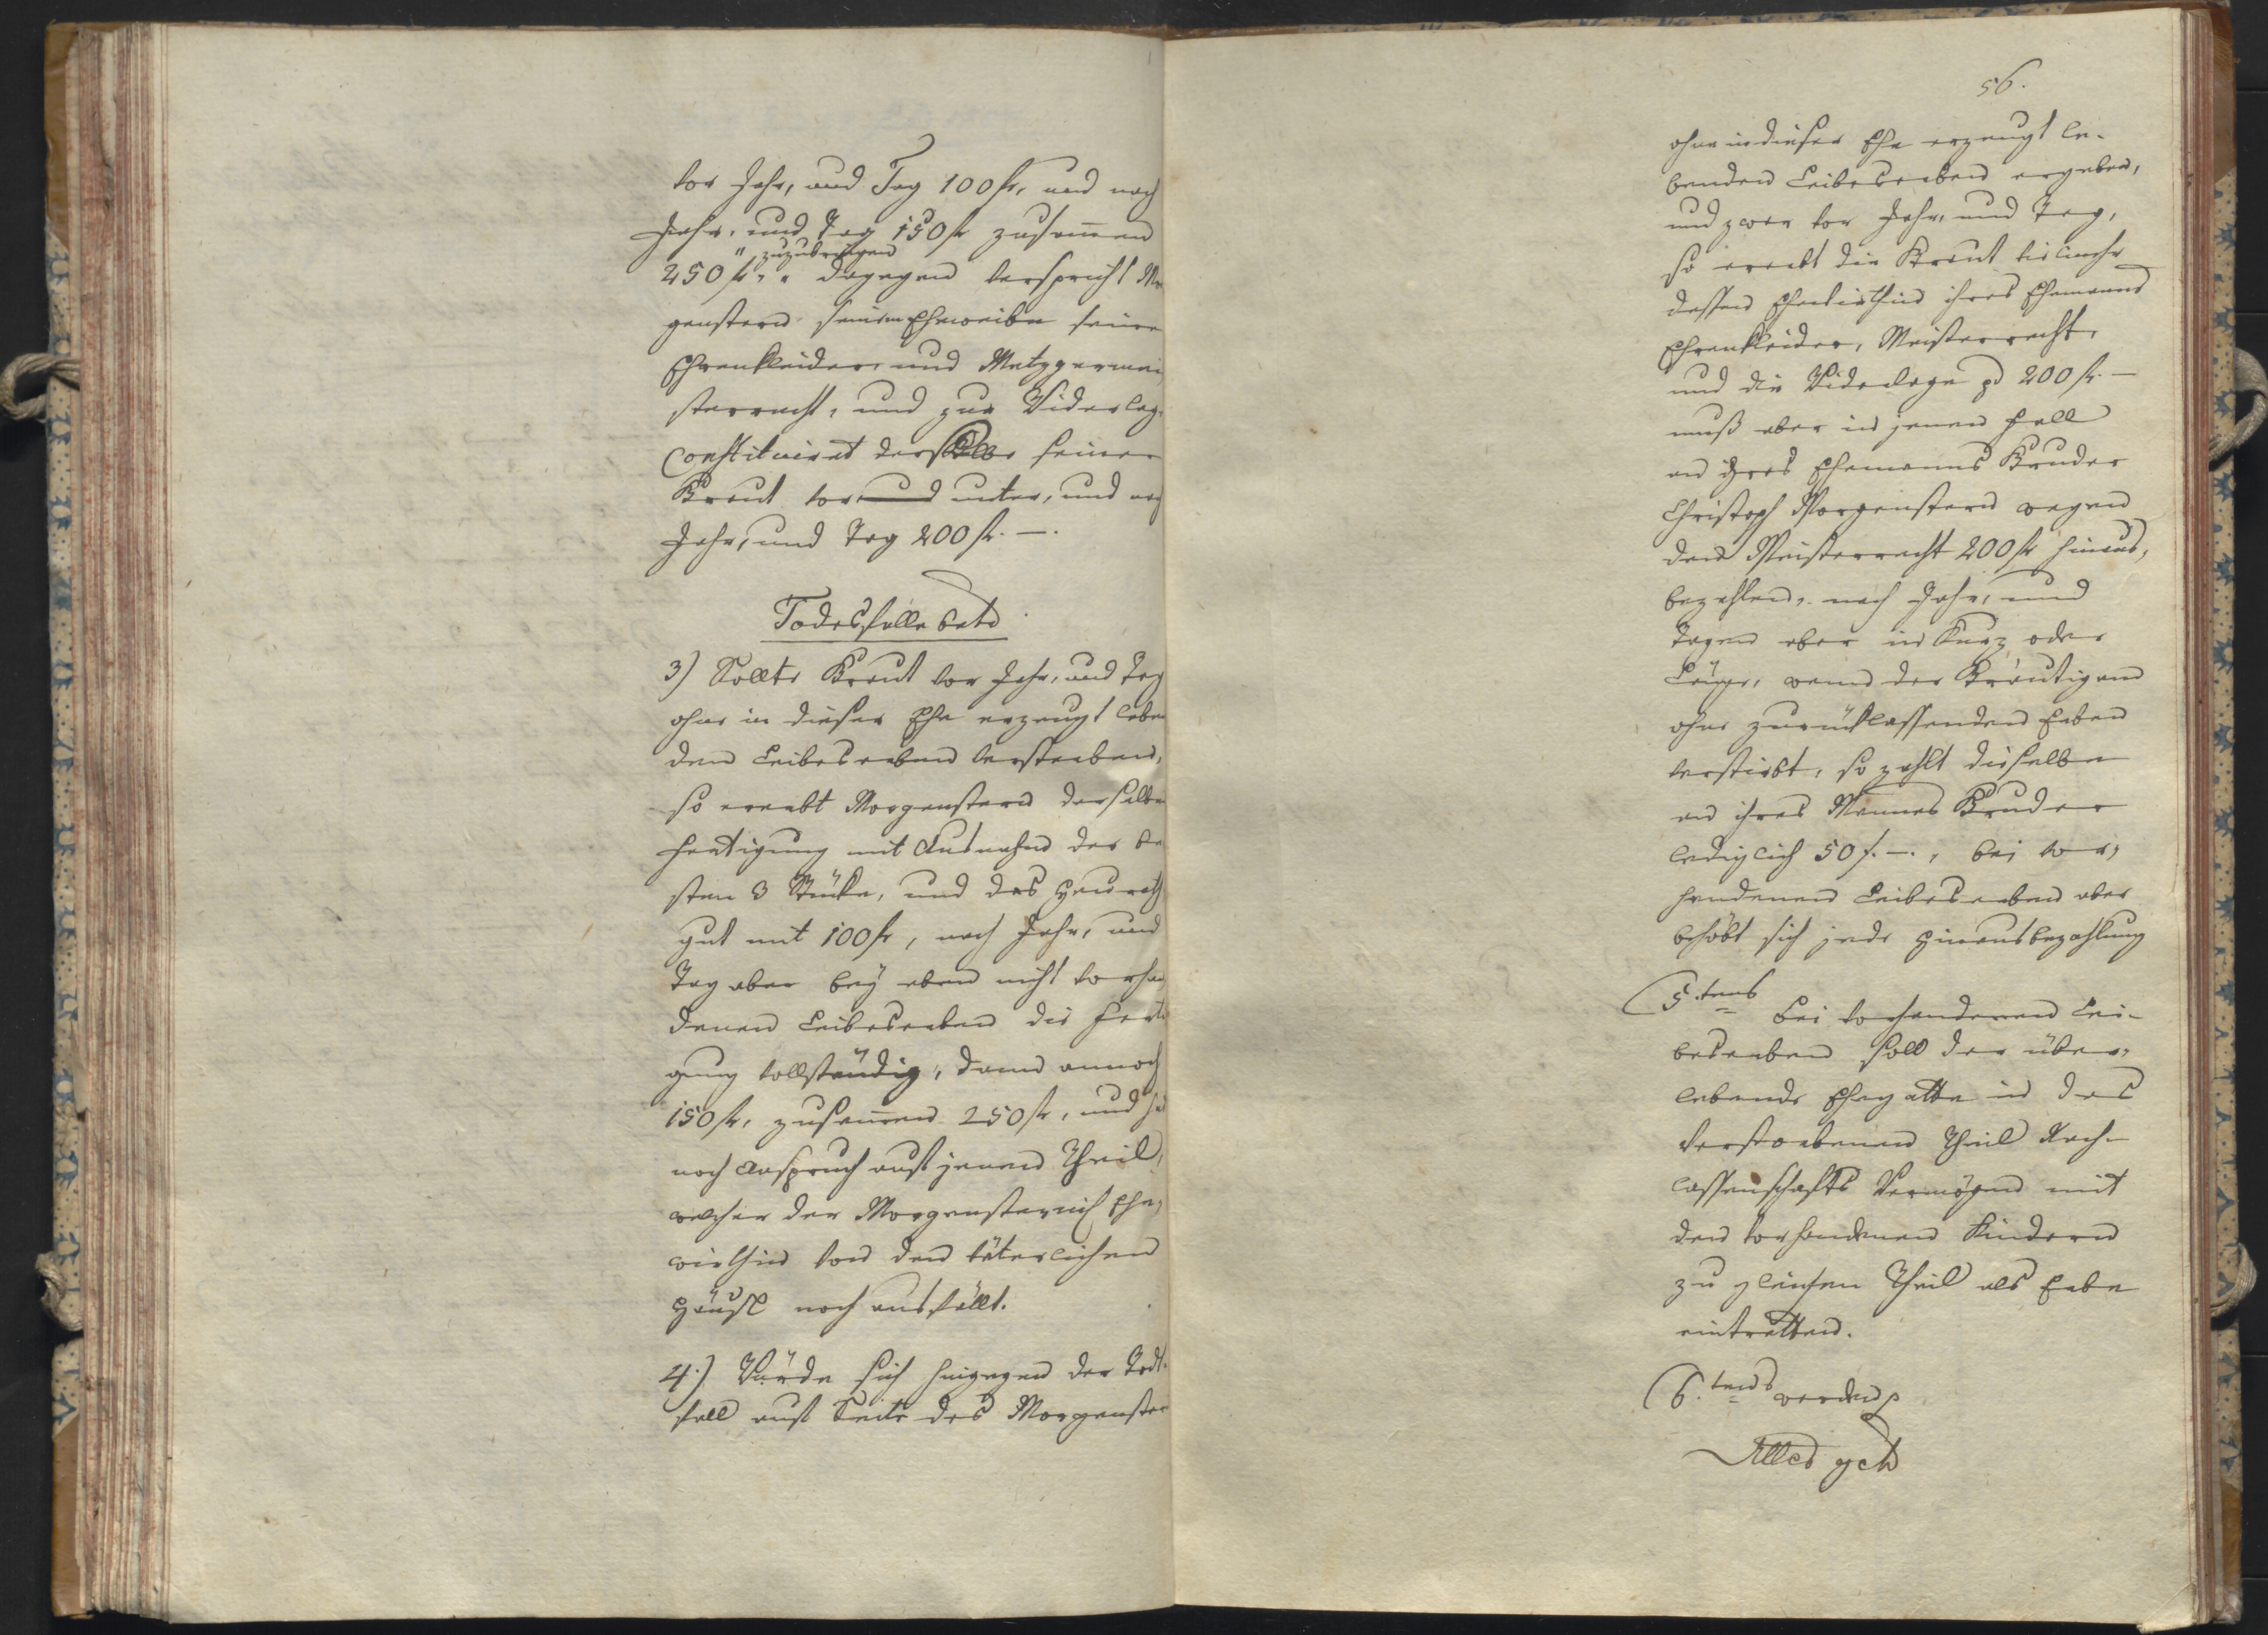 vor Jahr, und Tag 100 fr, und nach
Jahr, und Tag 150 fr zusamen
" zuzubringen
250 fr, " dagegen verspricht Mor
genstern seinem Eheweibe seine
Ehrenkleider und Metzgermei
sterrecht, und zur Widerlag
Constituiret derselbe seiner
Braut vor und unter, und nach
Jahr, und Tag 200 fr. —.
Todesfälle betr
3) Sollte Braut vor Jahr, und Tag
ohne in dieser Ehe erzeugt leben
den Leibeserben versterben,
so ererbt Morgenstern derselben
Fertigung mit Ausnahm der be
sten 3 Stücke, und das Heurath
gut mit 100 fr, nach Jahr, und
Tag aber bey eben nicht vorhan
denen Leibeserben die Ferti
gung vollständig, dann annoch
150 fr, zusamen 250 fr, und hat
noch Anspruch auf jenen Theil,
welcher der Morgensternisch Ehe,
wirthin von den väterlichen
Häusl noch ausfällt.
4.) Würde sich hingegen der Todt-
fall auf Seite des Morgenster
56.
ohne in dieser Ehe erzeugt le-
benden Leibeserben ergeben,
und zwar vor Jahr, und Tag,
so ererbt die Braut vielmehr
dessen Ehewirthin ihres Ehemanns
Ehrenkleider, Meisterrecht,
und die Widerlage pd 200 fr. —
muß aber in jenen Fall
an ihres Ehemanns Bruder
Christoph Morgenstern wegen
den Meisterrecht 200 fr hinaus,
bezahlen, nach Jahr, und
Tagen aber in Kurz oder
Länge, wenn der Bräutigam
ohne zurücklassenden Erben
verstirbt, so zahlt dieselbe
an ihres Mannes Bruder
lediglich 50 f. —., bei vor,
handenen Leibeserben aber
behebt sich jede Hinausbezahlung
5.tens Bei vorhandenen Lei-
beserben soll der über,
lebende Ehegatte in des
verstorbenen Theil Nach-
lassenschafts Vermögen mit
den vorhandenen Kindern
zu gleichen Theil als Erbe
eintretten.
6.tens werden
Alles geh